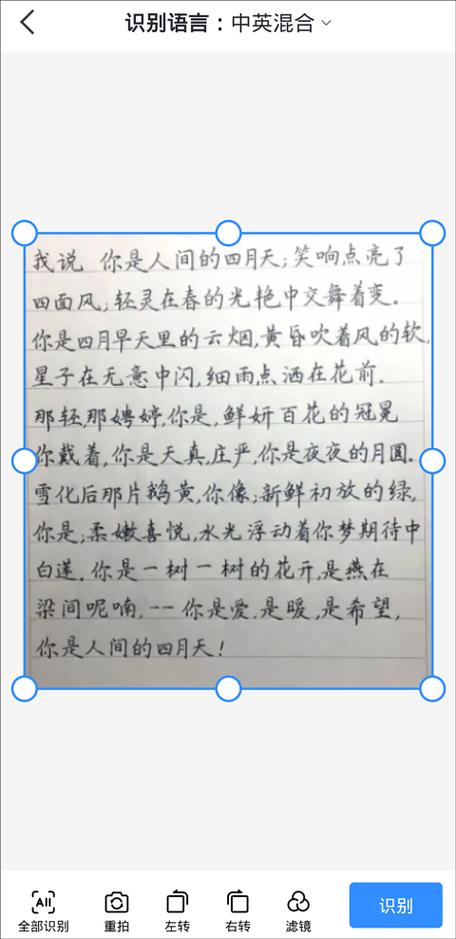 识别语言：中英混合
我说 你是人间的四月天;笑响点亮了
四面风;轻灵在春的光艳中交舞着变.
你是四月早天里的云烟,黄昏吹着风的软,
星子在无意中闪,细雨点洒在花前.
那轻,那娉婷,你是,鲜妍百花的冠冕
你戴着,你是天真,庄严,你是夜夜的月圆.
雪化后那片鹅黄,你像;新鲜初放的绿,
你是;柔嫩喜悦,水光浮动着你梦期待中
白莲.你是一树一树的花开,是燕在
梁间呢喃,——你是爱,是暖,是希望,
你是人间的四月天!
All
全部识别 重拍 左转 右转 滤镜 识别